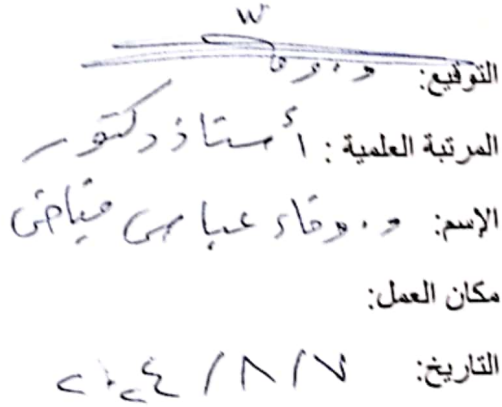 التوقيع:
المرتبة العلمية : أستاذ دكتور
الإسم: د. وفاء عباس فياض
مكان العمل:
التاريخ: ٢٠٢٤ / ٨ / ٧